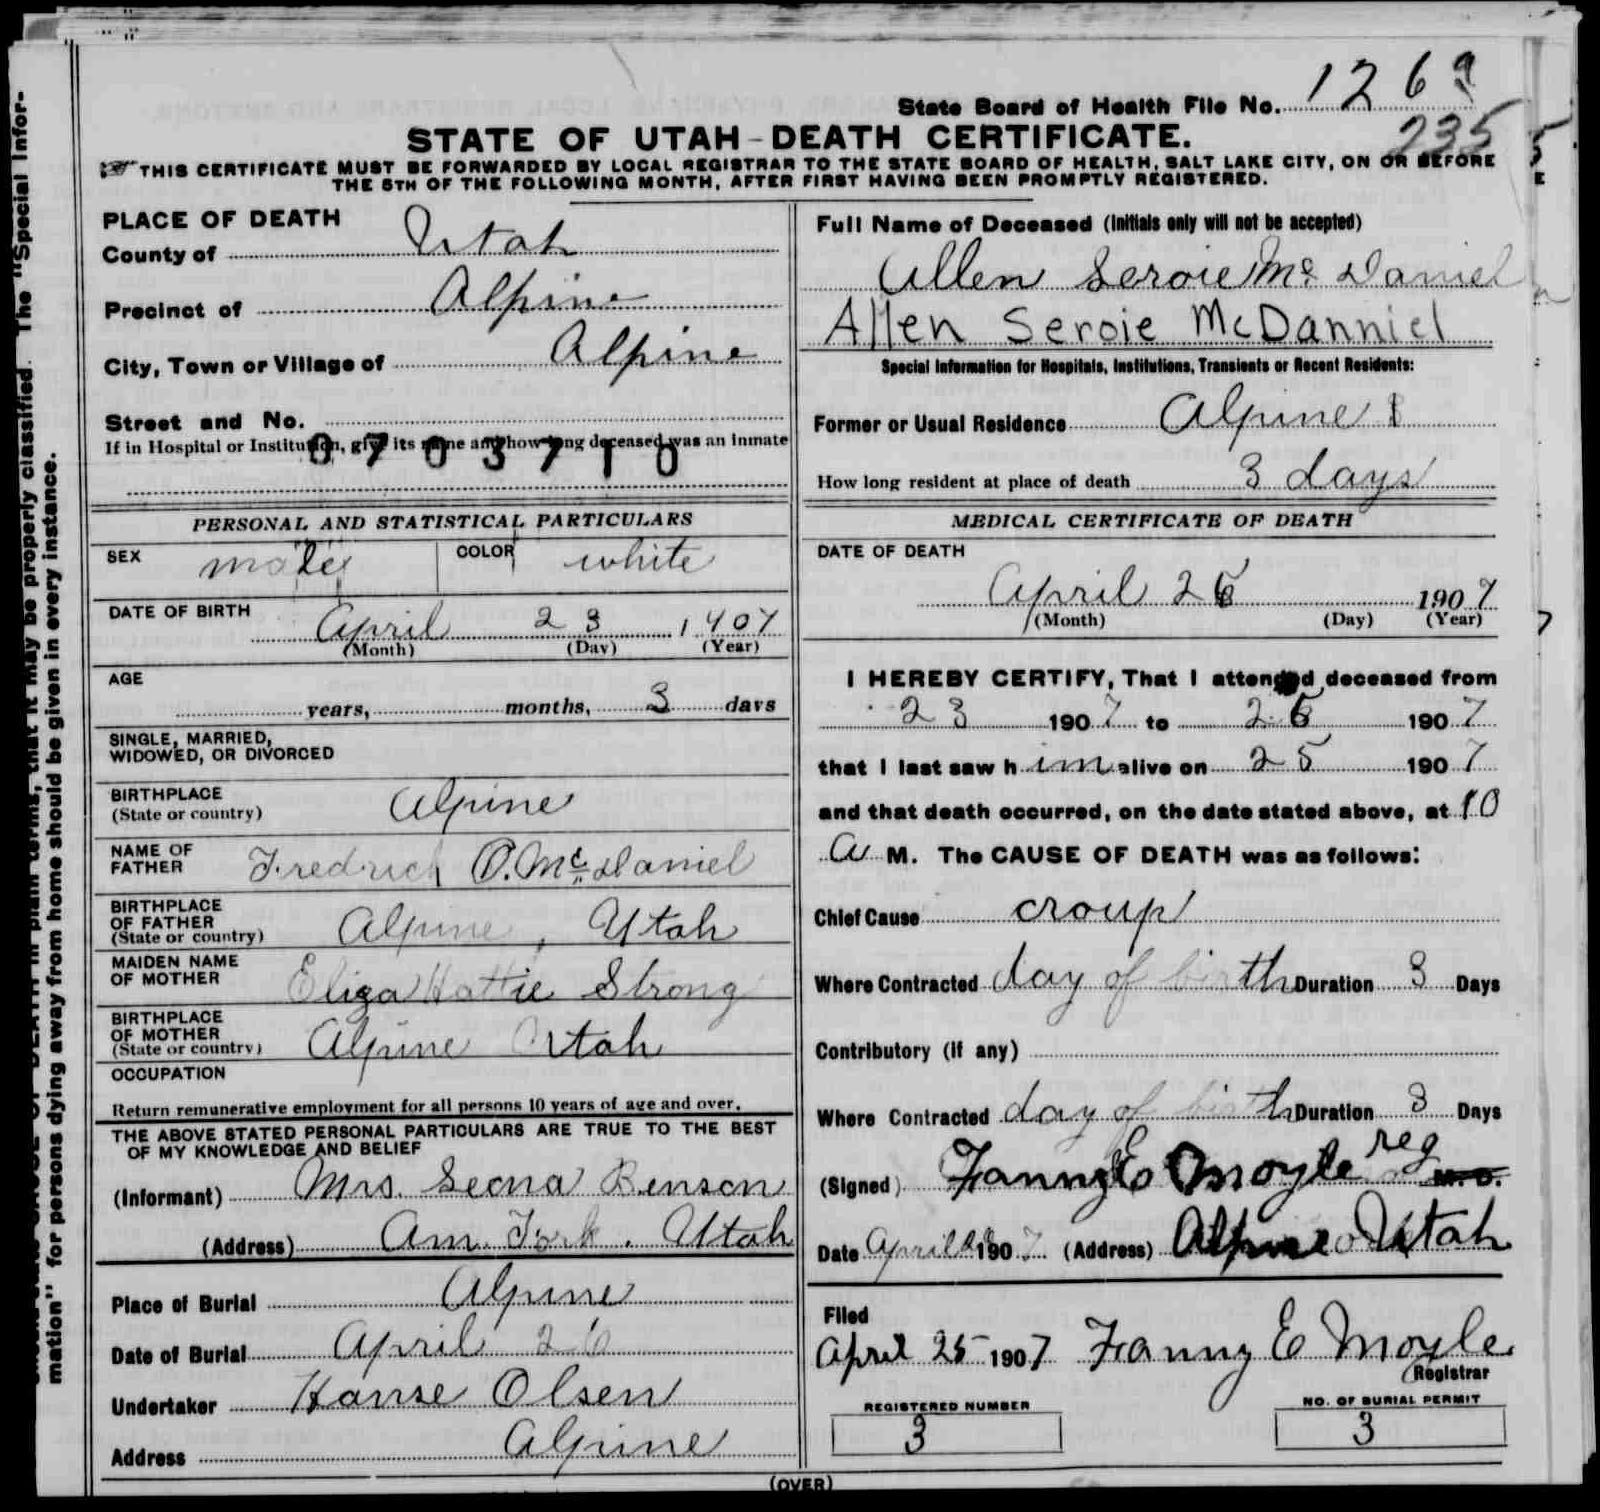 State Board of Health File No. 1269
235
STATE OF UTAH - DEATH CERTIFICATE.
THIS CERTIFICATE MUST BE FORWARDED BY LOCAL REGISTRAR TO THE STATE BOARD OF HEALTH, SALT LAKE CITY, ON OR BEFORE
THE 5TH OF THE FOLLOWING MONTH, AFTER FIRST HAVING BEEN PROMPTLY REGISTERED.
PLACE OF DEATH
County of Utah
Precinct of Alpine
City, Town or Village of Alpine
Street and No.
If in Hospital or Institution, give its name and how long deceased was an inmate
0703710
PERSONAL AND STATISTICAL PARTICULARS
SEX male COLOR white
DATE OF BIRTH April 23 1907
(Month) (Day) (Year)
AGE
years, months, 3 days
SINGLE, MARRIED,
WIDOWED, OR DIVORCED
BIRTHPLACE
(State or country) Alpine
NAME OF
FATHER Fredrick O. McDaniel
BIRTHPLACE
OF FATHER
(State or country) Alpine, Utah
MAIDEN NAME
OF MOTHER Eliza Hattie Strong
BIRTHPLACE
OF MOTHER
(State or country) Alpine Utah
OCCUPATION
Return remunerative employment for all persons 10 years of age and over.
THE ABOVE STATED PERSONAL PARTICULARS ARE TRUE TO THE BEST
OF MY KNOWLEDGE AND BELIEF
(Informant) Mrs. Seona Benson
(Address) Am. Fork. Utah
Place of Burial Alpine
Date of Burial April 26
Undertaker Hanse Olsen
Address Alpine
Full Name of Deceased (Initials only will not be accepted)
Allen Seroie Mc Daniel
Allen Seroie McDanniel
Special Information for Hospitals, Institutions, Transients or Recent Residents:
Former or Usual Residence Alpine
How long resident at place of death 3 days
MEDICAL CERTIFICATE OF DEATH
DATE OF DEATH
April 26 1907
(Month) (Day) (Year)
I HEREBY CERTIFY, That I attended deceased from
23 1907 to 26 1907
that I last saw h im alive on 25 1907
and that death occurred, on the date stated above, at 10
a M. The CAUSE OF DEATH was as follows:
Chief Cause croup
Where Contracted day of birth Duration 3 Days
Contributory (if any)
Where Contracted day of birth Duration 3 Days
(Signed) Fanny E Moyle reg M. D.
Date April 1907 (Address) Alpine Utah
Filed
April 25 1907 Fanny E Moyle
Registrar
REGISTERED NUMBER
3
NO. OF BURIAL PERMIT
3
(OVER)
The "Special Infor-
mation" for persons dying away from home should be given in every instance.